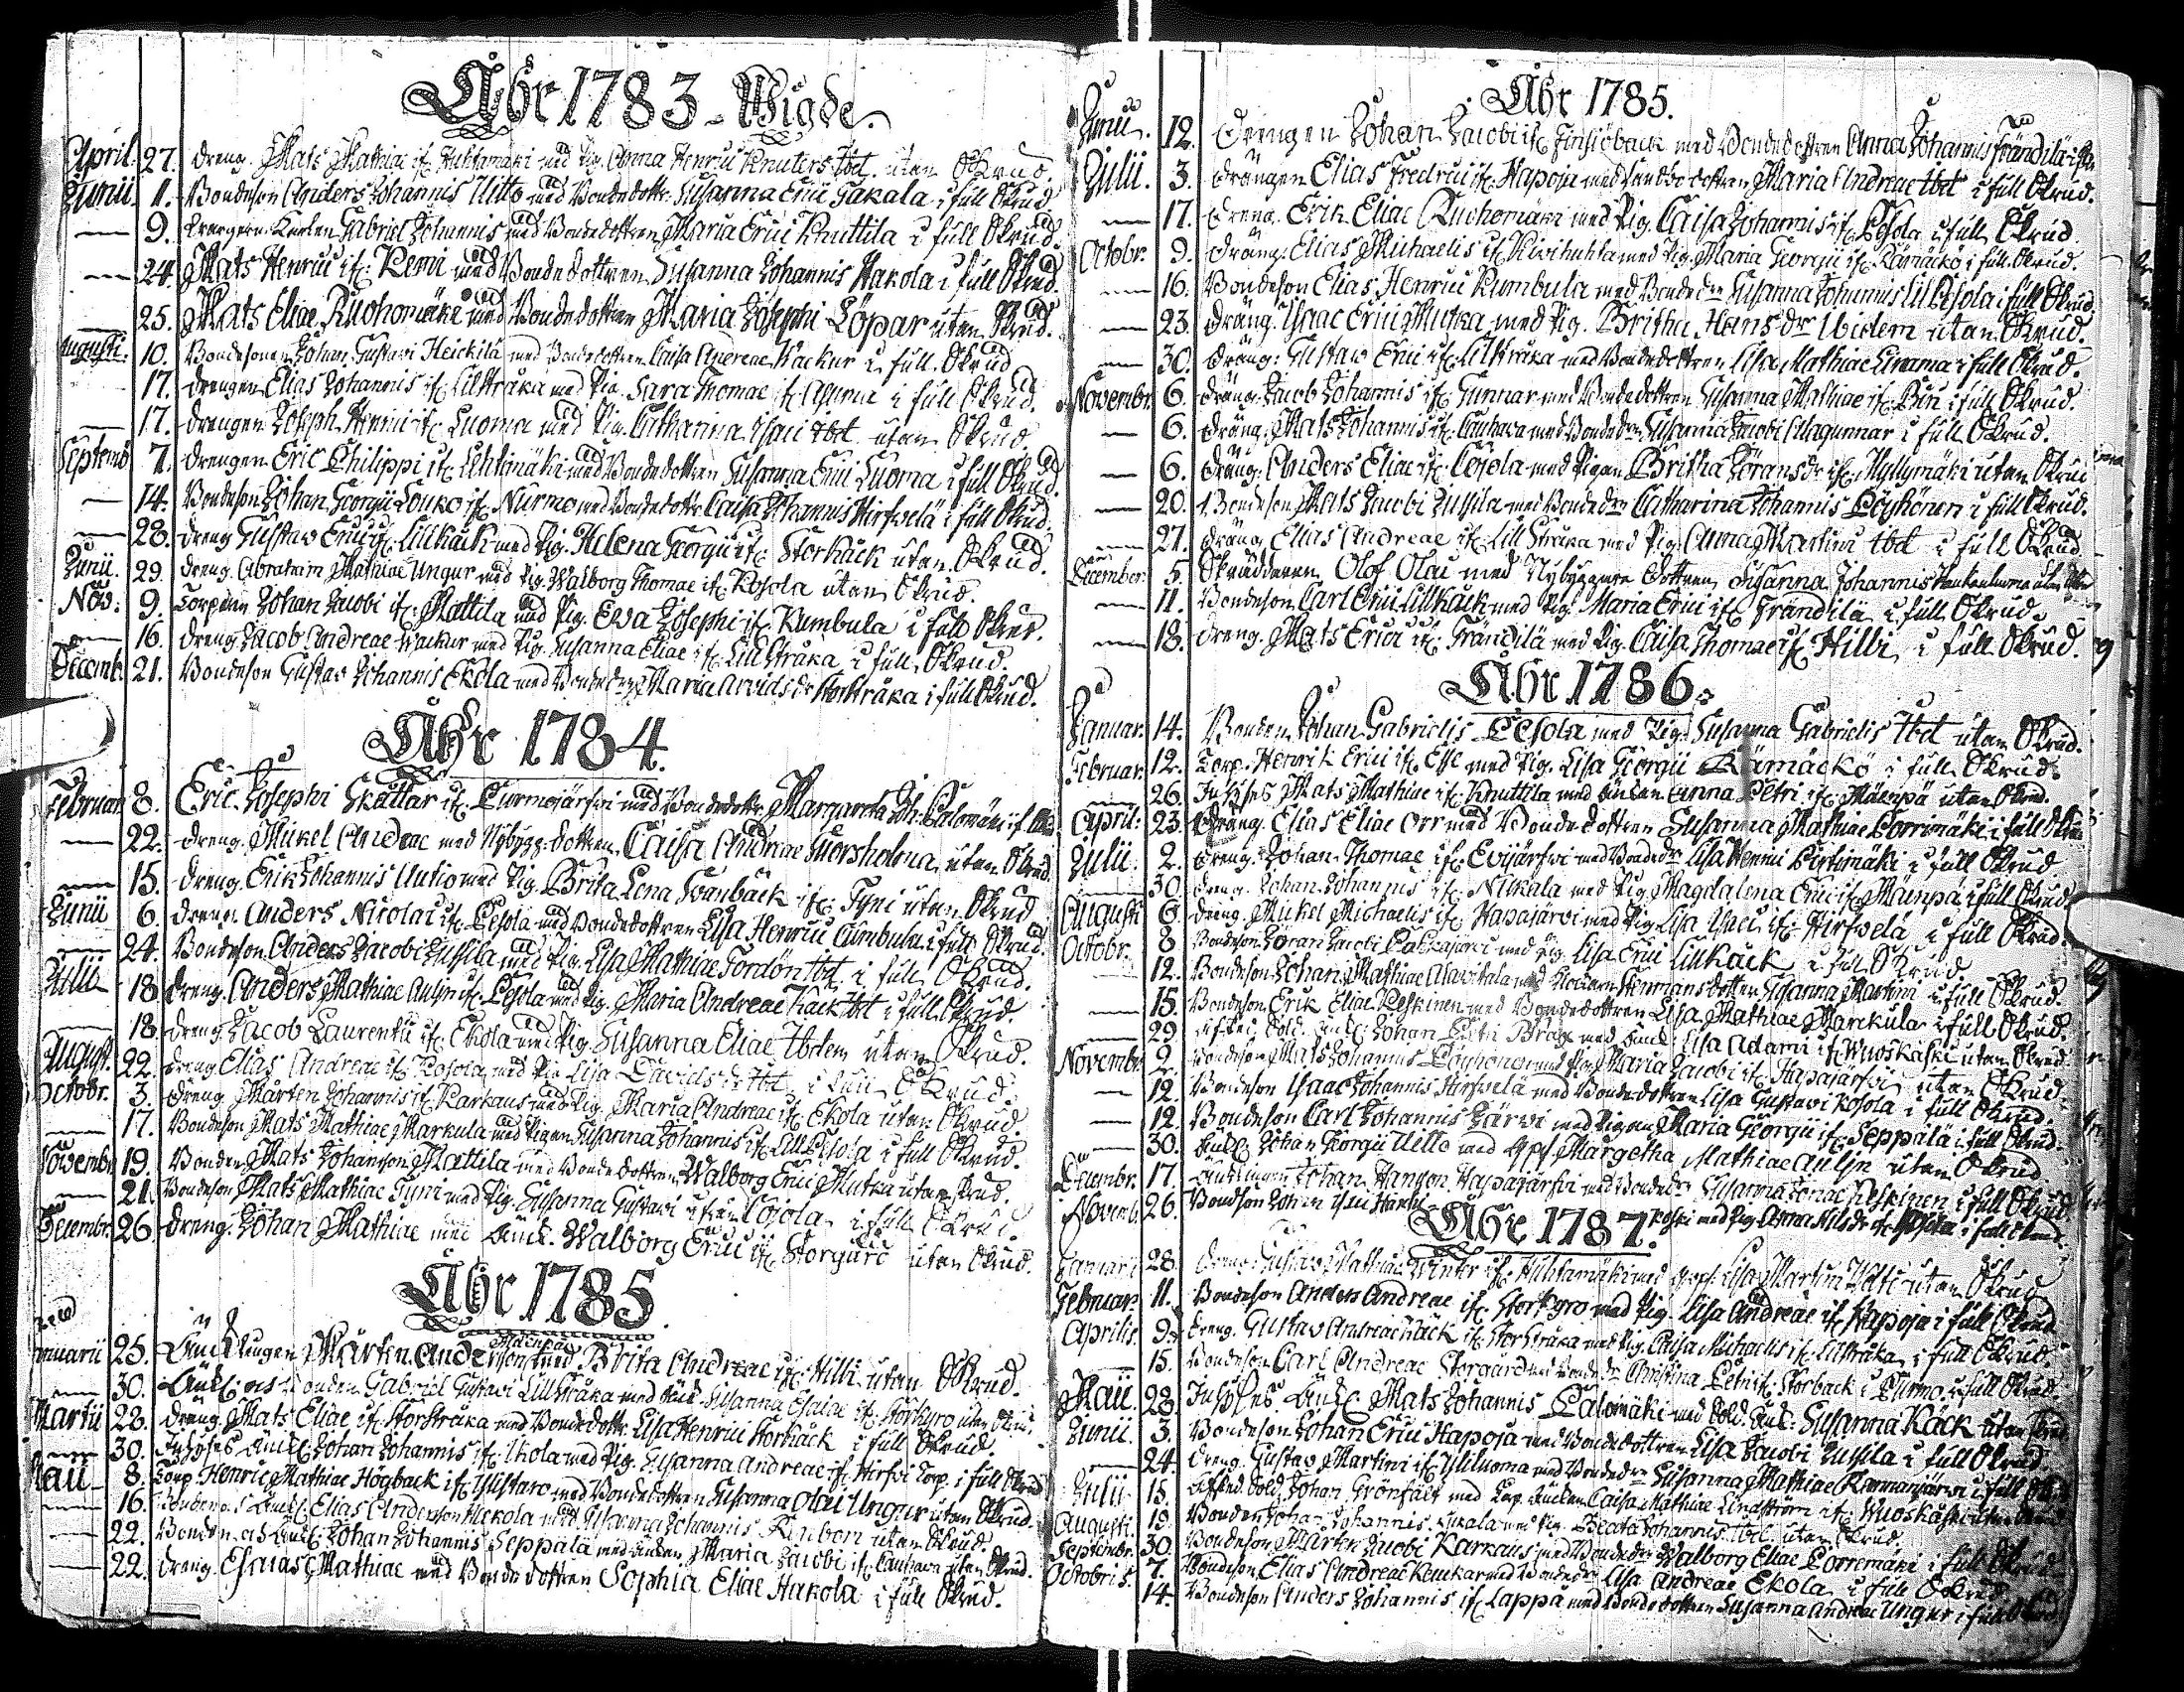 Åhr 1783 Wigde.
April. 27. dreng. Mats Mathiae if med Pig. Anna Henrici tbd. utan Skrud.
Junii. 11. Bondeson Anders Johannis Uitto med Bondedottr. Susanna Erici Jakala i full Skrud
9. Gabriel Johannis med Bondedottren Maria Erici Knuttila i full Skrud.
24. Mats Henrici if. Remi med Bondedottren Susanna Johannis Hakola i full Skrud.
25. Mats Eliae Ruohomäki med Bondedottren Maria Josephi Löpar utan Skrud.
Augusti. 10. Bondesonen Johan Gustavi Heickilä med Bondedottren Caisa Andreae Wackur i full Skrud
17. drengen Elias Johannis if. Lillstråka med Pig. Sara Thomae if. i full Skrud.
17. drengen Joseph Henrici if. Luoma med Pig. Catharina Isaci tbd utan Skrud
Septemb. 7. drengen Eric Philippi if. Lehtimäki med Bondedottren Susanna Erici Luoma i full Skrud.
14. Bondeson Johan Georgii Louko if. Nurmo med Bondedottr. Caisa Johannis Hirfvelä i full Skrud.
28. dreng Gustav Erici if. Lillkäck med Pig. Helena Georgii if. Storkäck utan Skrud.
Junii. 29. dreng. Abraham Mathiae Ungur med Pig. Walborg Thomae if. Kosola utan Skrud.
Nov: 9. Torparen Johan Jacobi if. Mattila med Pig. Ewa Josephi if. Kumbula i full Skrud.
16. dreng Jacob Andreae Wackur med Pig. Susanna Eliae if. Lillstråka i full Skrud.
Decemb. 21. Bondeson Gustav Johannis Ekola med Bondedr Maria Arvidsdr Storstråka i full Skrud.
Åhr 1784.
Februar. 8. Eric Josephi Skattar if. Purmojärfvi med Bondedottr. Margareta Joh: Palomäki i f.
22. dreng. Mickel Andreae med Nybygg. dottren Caisa Andreae Morsholma utan Skrud
15. dreng. Erik Johannis Autio med Pig. Brita Lena Svanbäck if. Tyni utan Skrud
Junii 6. dreng Anders Nicolai if. Pesola med Bondedottren Lisa Henrici Cumbula i full Skrud.
24. Bondeson Anders Jacobi Jussila med Pig. Lisa Mathiae Tordön tbd. i full Skrud.
Julii 18. dreng. Anders Mathiae Aulin if. Pesola med Pig. Maria Andreae Käck tbd i full Skrud.
18. dreng Jacob Laurentii if. Ekola med Pig. Susanna Eliae Ibidem utan Skrud.
August. 22. dreng Elias Andreae if. Kosola med Pig Lisa Davidsdr tbd. i full Skrud.
Octobr. 3. dreng Mårten Johannis if. Karkaus med Pig. Maria Andreae if. Ekola utan Skrud.
17. Bondeson Mats Mathiae Markula med Pigan Susanna Johannis if. Lill Pesola i full Skrud.
Novembr. 19. Bonden Mats Johanson Mattila med Bondedottren Walborg Erici Mutka utan Skrud.
21. Bondeson Mats Mathiae Tyni med Pig. Susanna Gustavi ifrån Cojola i full Skrud.
Decembr. 26. dreng. Johan Mathiae med Änk. Walborg Erici if. Storgård utan Skrud.
Åhr 1785
Januarii 25. Änklingen Mårten Anderson med Brita Andreae if. Hilli utan Skrud.
30. Änkl. och Bonden Gabriel Gustavi Lillstråka med Änk. Susanna Esaiae if. Storkyro utan Skrud.
Martii 28. dreng. Mats Eliae if. Storstråka med Bondedottr. Lisa Henrici Storkäck i full Skrud.
30. Inhyses Änkl. Johan Johannis if. Ikola med Pig. Susanna Andreae if. Hirfvi Torp. i full Skrud
Maii 8. Torp. Henric Mathiae Högback if. Ylistaro med Bondedottren Susanna Olai Ungur utan Skrud.
16. Bonden och Änkl. Elias Anderson Hekola med Susanna Johannis Renbom utan Skrud.
22. Bonden och Änkl. Johan Johannis Seppälä med Änkan Maria Jacobi if. Cauhava utan Skrud.
22. dreng Esaias Mathiae med Bondedottren Sophia Eliae Hakola i full Skrud.
Åhr 1785.
Junii. 12. Drengen Johan Jacobi if. Finsiöbacka med Bondedottren Anna Johannis Frändilä i full
Julii. 3. drängen Elias Fredrici if. Hapoja med Landbodottren Maria Andreae tbd i full Skrud.
17. dreng. Erik Eliae Ruohomäki med Pig. Caisa Johannis if. Pesola i full Skrud
Octobr. 9. dräng. Elias Michaelis if. Kivihuhta med Pig. Maria Georgii if. Rämäckö i full Skrud.
16. Bondeson Elias Henrici Kumbula med Bondedr Susanna Johannis Lillpesola i full Skrud
23. dräng. Isaac Erici Mutka med Pig. Britha Hansdr Ibidem utan Skrud.
30. dräng: Gustav Erici if. Lillstråka med Bondedottren Lisa Mathiae Livama i full Skrud.
Novembr. 6. dräng. Jacob Johannis if. Gunnar med Bondedottren Susanna Mathiae if. Bin i full Skrud.
6. dräng. Mats Johannis if. Cauhava med Bondedr Susanna Jacobi Lillagunnar i full Skrud.
6. dräng. Anders Eliae if. Cojola med Pigan Britha Göransdr if. Myllymäki utan Skrud
20. Bondeson Mats Jacobi Jussila med Bondedr Catharina Johannis Pöyhönen i full Skrud.
27. dräng. Elias Andreae if. Lill Stråka med Pig. Anna Martini tbd i full Skrud
December. 5. Skräddaren Olof Olai med Nybyggare Dottren Susanna Johannis utan Skrud
11. Bondeson Carl Erici Lillkäck med Pig. Maria Erici if. Frändilä i full Skrud.
18. dreng. Mats Erici if. Frändilä med Pig. Caisa Thomae if. Hilli i full Skrud.
Åhr 1786.
Januar. 14. Bonden Johan Gabrielis Pesola med Pig. Susanna Gabrielis Tbd utan Skrud.
Februar. 12. Torp. Henrik Erici if. Esse med Pig. Lisa Georgii Rämäckö i full Skrud.
26. Inhyses Mats Mathiae if. Knuttila med änkan Anna Petri if. Mäenpä utan Skrud.
April. 23. dräng. Elias Eliae Orr med Bondedottren Susanna Mathiae Porrimäki i full Skrud
Julii 2. dreng. Johan Thomae if. Evijärfvi med Bondedr Lisa Henrici Pirtimäki i full Skrud
30. dreng. Johan Johannis if. Niskala med Pig. Magdalena Erici if. Maunpä i full Skrud
Augusti 6. dreng. Mickel Michaelis if. Hapajärvi med Pig. Lisa Isaci if. Hirfvelä i full Skrud.
Octobr. 8. Bondeson Göran Jacobi Palkajärvi med Pig. Lisa Erici Lillkäck i full Skrud.
12. Bondeson Johan Mathiae med Susanna Martini i full Skrud.
15. Bondeson Erik Eliae Keskinen med Bondedottren Lisa Mathiae Marckula i full Skrud.
29. Afsked. Sold. Änkl. Johan Petri Brag med Änk. Lisa Adami if. Wuoskåski utan Skrud
Novembr. 9. Bondeson Mats Johannis Pöyhönen med Pig. Maria Jacobi if. Hapajärfvi utan Skrud.
12. Bondeson Isaac Johannis Hirfvelä med Bondedottren Lisa Gustavi Kosola i full Skrud.
12. Bondeson Carl Johannis Järvi med Pigan Maria Georgii if. Seppälä i full Skrud.
30. Änkl. Johan Georgii Uitto med Margetha Mathiae Aulin utan Skrud
Decembr. 17. Änklingen Johan Hanson Hapajärfvi med Bondedr Susanna Jonae Keskinen i full Skrud
Novemb. 26. Bondson Johan Isaci Harju koski med Pig Anna Nilsdr if. i full Skrud.
Åhr 1787.
Januari 28. dreng. Gustav Mathiae Winter if. Huhtamäki med Lisa Martini utan Skrud
Februar. 11. Bondeson Anders Andreae if. Storkyro med Pig. Lisa Andreae if. Hapoja i full Skrud
Aprilis. 9. dreng. Gustav Andreae Käck if. Storstråka med Pig. Caisa Michaelis if. Lillstråka i full Skrud.
15. Bondeson Carl Andreae Storgård med Bondedr Christina Petri if. Storback i Purmo i full Skrud
Maii. 28. Inhyses Änkl. Mats Johannis Palomäki med Sold. Änk: Susanna Käck utan Skrud
Junii. 3. Bondeson Johan Erici Hapoja med Bondedottren Lisa Jacobi Jussila i full Skrud.
24. dreng. Gustav Martini if. Ylilouma med Bondedr Susanna Mathiae i full
Julii 15. Afsked. Sold. Johan Grönfält med Torp. änkan Caisa Mathiae Lindström if. Wuoskåski utan Skrud
Augusti. 19. Bonden Johan Johannis med Pig. Beata Johannis Tbd utan Skrud.
Septembr. 30. Bondeson Mårten Jacobi Karkaus med Bondedr Walborg Eliae Porremäki i full Skrud
Octobris. 7. Bondeson Elias Andreae Keuckar med Bondedr Lisa Andreae Ekola i full Skrud
14. Bondeson Anders Johannis if. Lappa med Bondedottren Susanna Andreae Ungur i full Skrud